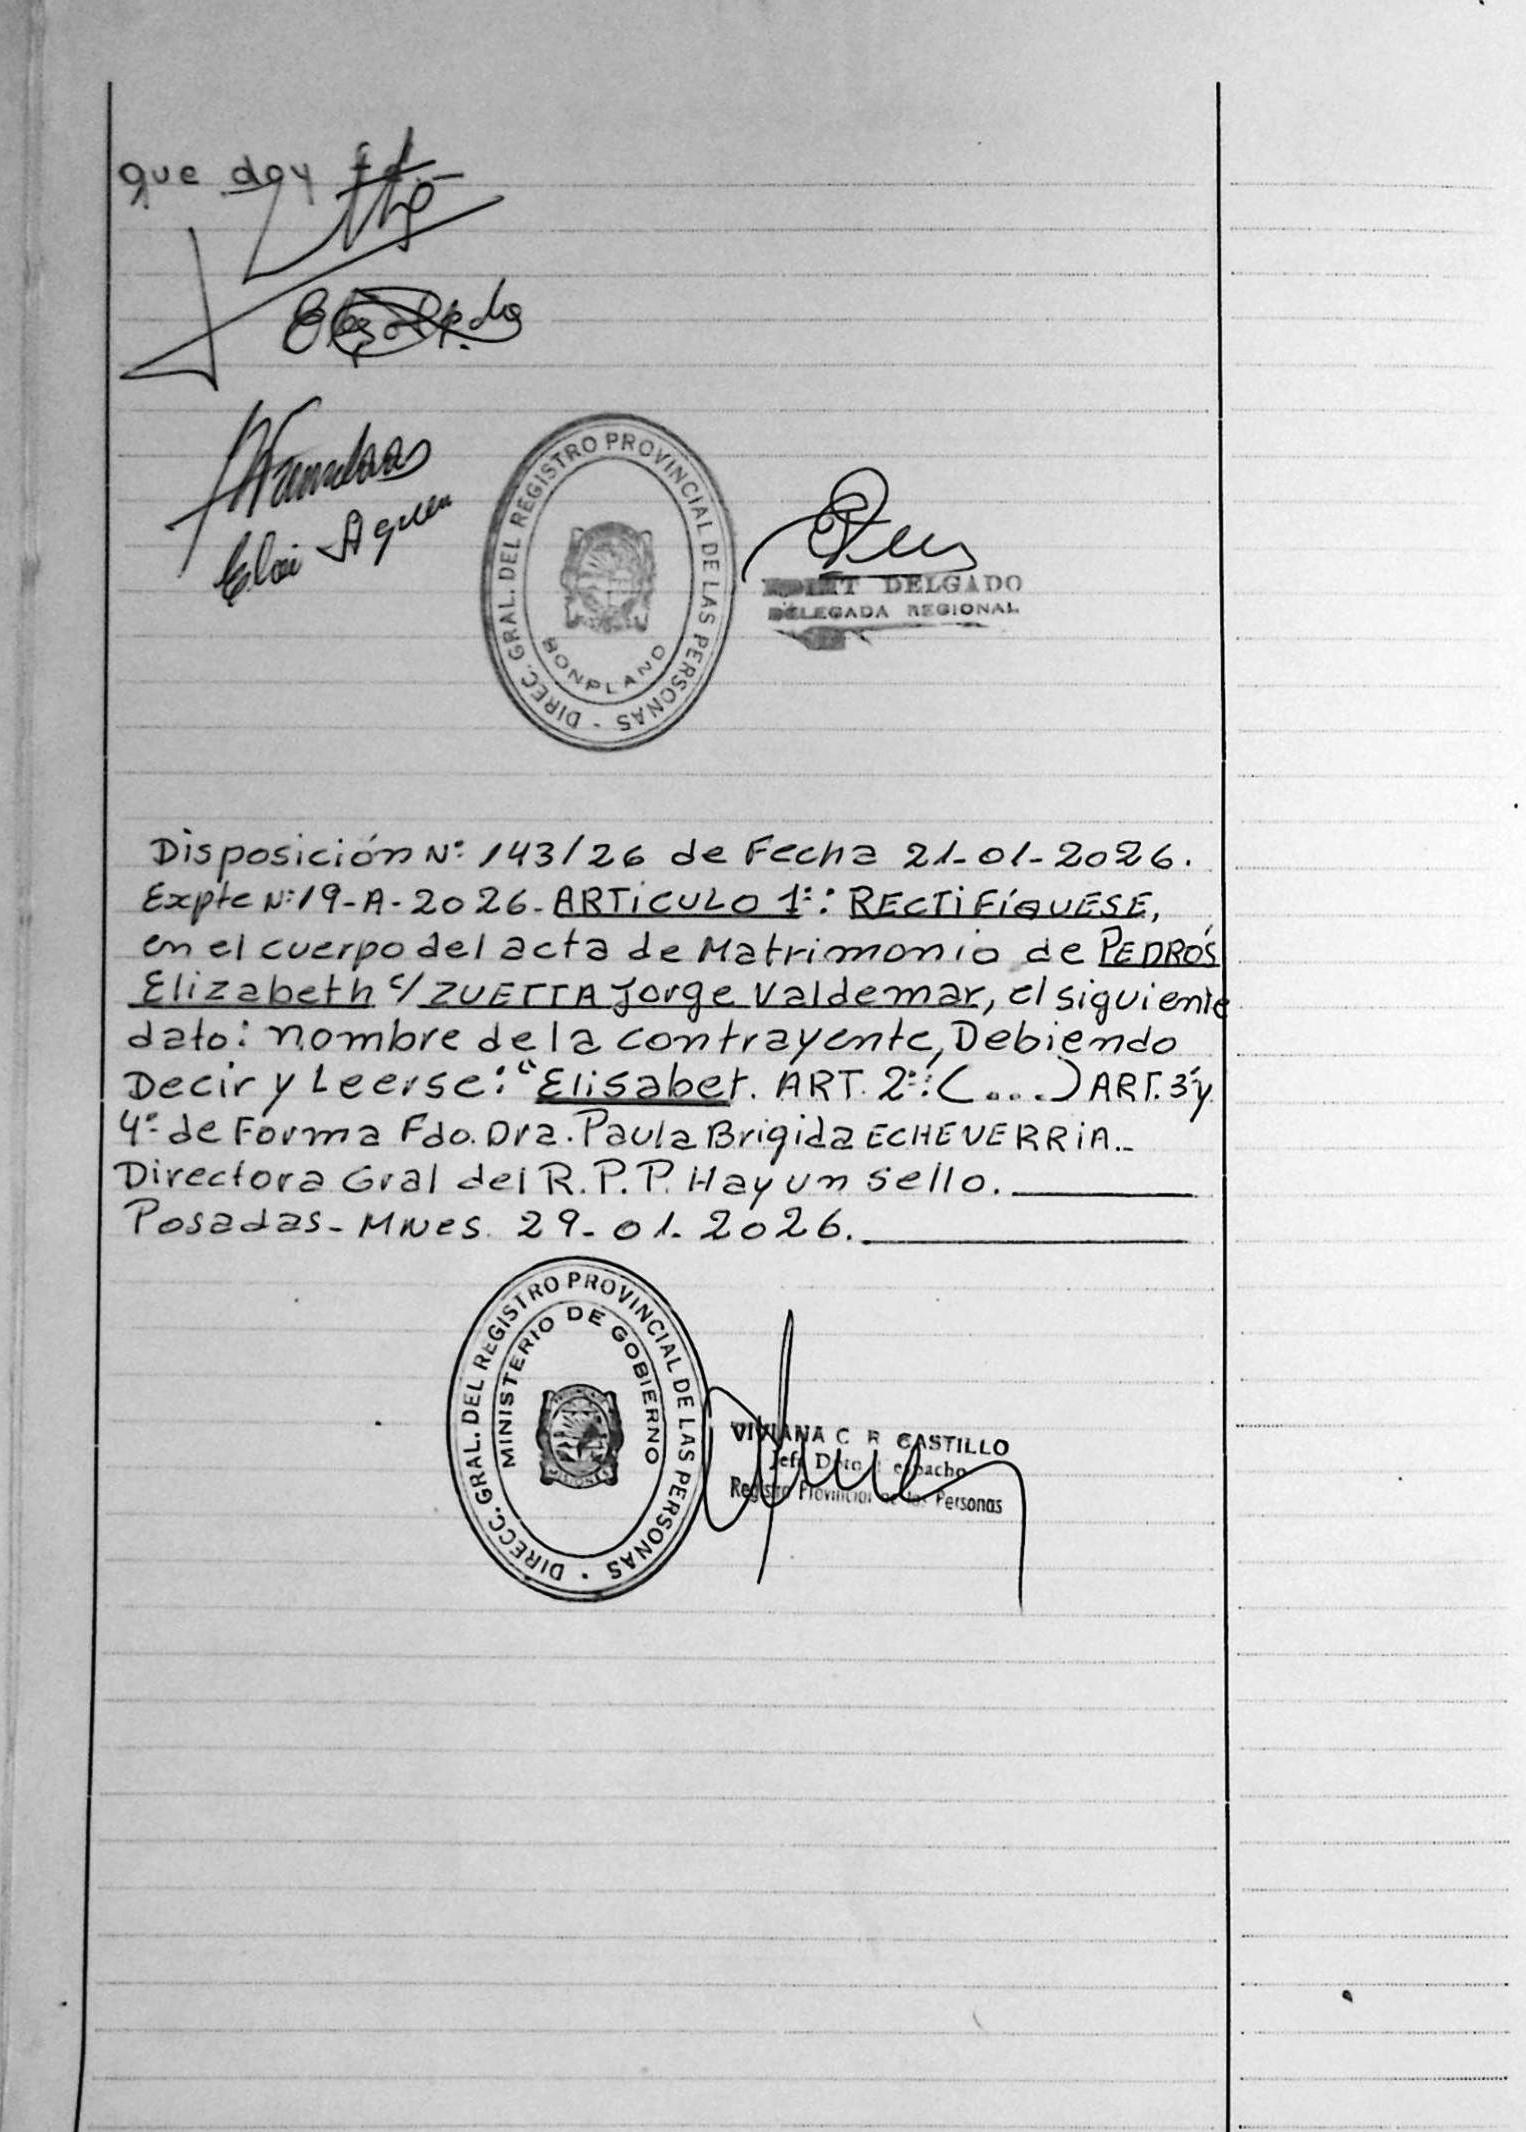 que doy
Eloi Aguer
DIREC. GRAL. DEL REGISTRO PROVINCIAL DE LAS PERSONAS -
BONPLAND
DELGADO
DELEGADA REGIONAL
Disposición Nº 143/26 de Fecha 21-01-2026.
Expte Nº 19-A-2026. ARTICULO 1º: RECTIFÍQUESE,
en el cuerpo del acta de Matrimonio de PEDROS
Elizabeth c/ ZUETTA Jorge Valdemar, el siguiente
dato: nombre de la contrayente, Debiendo
Decir y Leerse: "Elisabet. ART. 2º: (...) ART. 3º y
4º de Forma Fdo. Dra. Paula Brigida ECHEVERRIA.-
Directora Gral del R.P.P. Hay un sello.
Posadas-MNES. 29-01-2026.
DIRECC. GRAL. DEL REGISTRO PROVINCIAL DE LAS PERSONAS ·
MINISTERIO DE GOBIERNO
MISIONES
VIVIANA C R CASTILLO
Jefe Dpto Despacho
Registro Provincial de las Personas